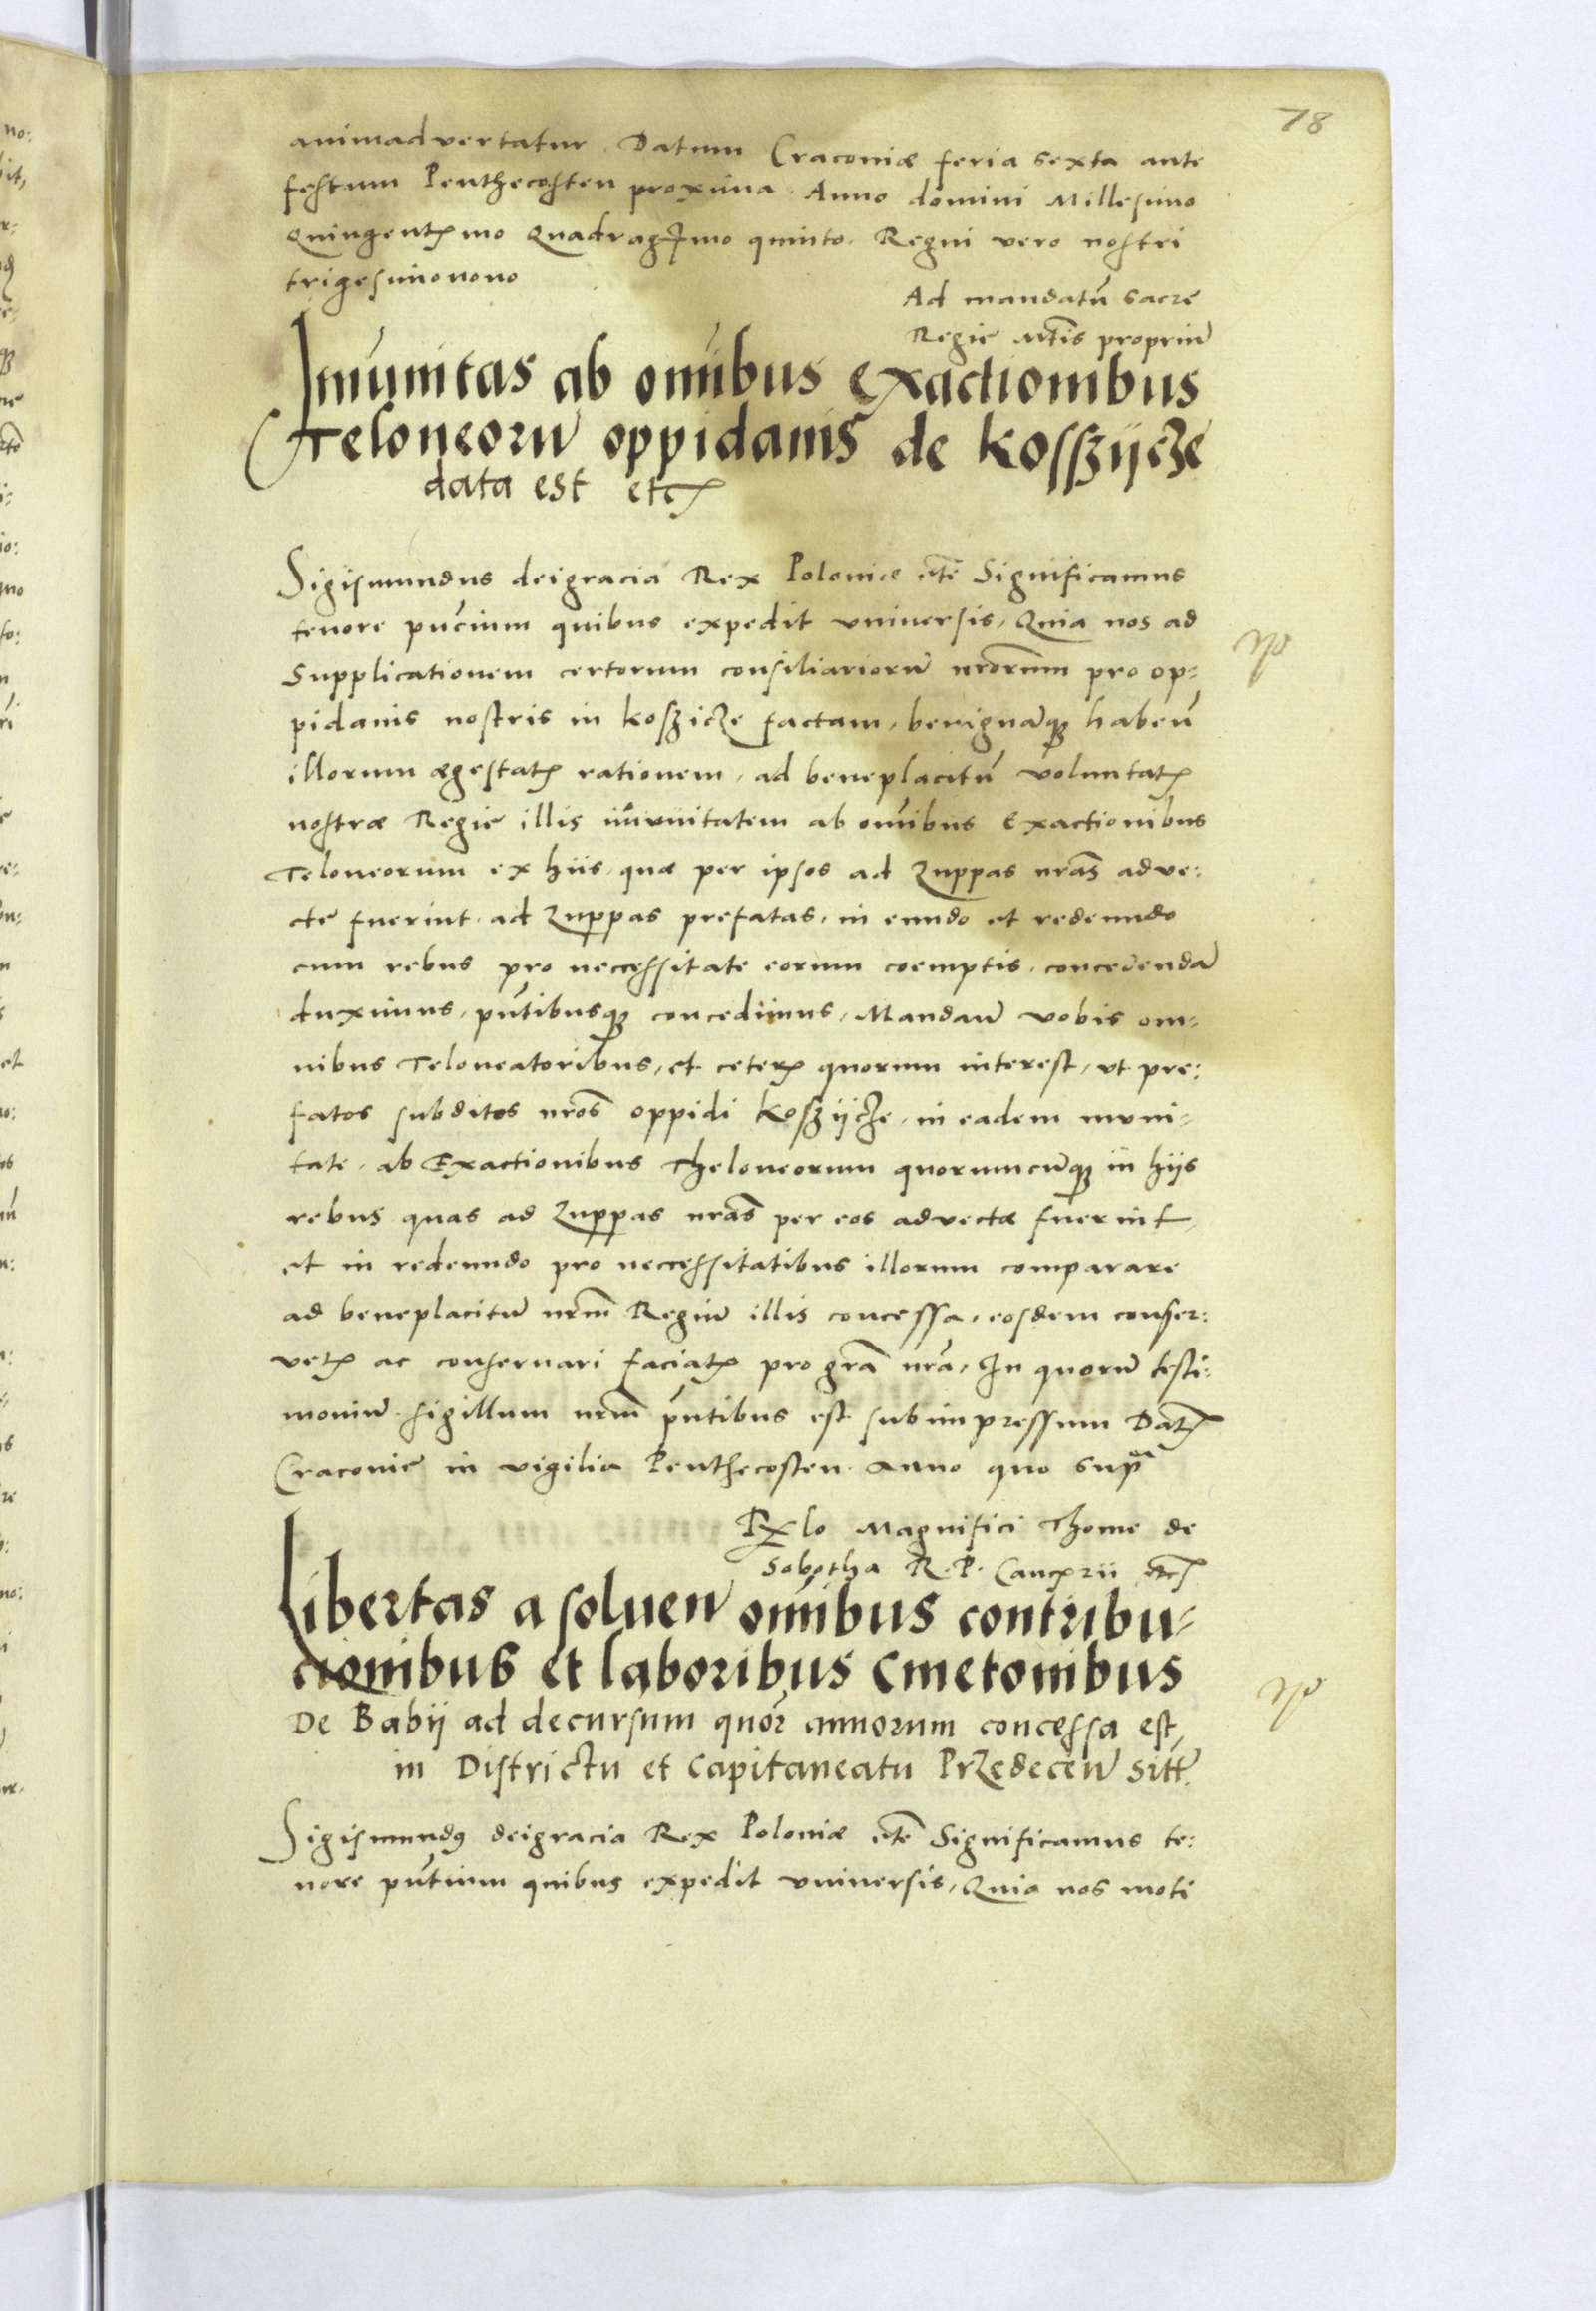 78
animadvertatur. Datum Craconiæ feria sexta ante
festum Penthecosten proxima. Anno domini Millesimo
Quingentꝭmo Quadragꝭmo quinto. Regni vero nostri
trigesimonono
Ad mandatū sacrę
Regię Mtis propriū
Imunitas ab omibus exactionibus
Teloneorū oppidanis de Kosszÿcze
data est etcꝭ
Sigismundus deigracia Rex Poloniæ etc̄ Significamus
tenore pn̄cium quibus expedit vniuersis, Quia nos ad
Supplicationem certorum consiliariorū nrorum pro op-
pidanis nostris in koszicze factam, benignāqꝫ habeñ
illorum ægestatꝭ rationem, ad beneplacitū voluntatꝭ
nostræ Regię illis im̄unitatem ab om̄ibus Exactionibus
Teloneorum ex hiis, quæ per ipsos ad Zuppas nrās adve:
ctę fuerint. ad Zuppas prefatas, in eundo et redeundo
cum rebus pro neccessitate eorum coemptis. concedendā
duximus, pn̄tibusqꝫ concedimus, Mandam̄ vobis om-
nibus Teloneatoribus, et ceterꝭ quorum interest, vt pre:
fatos subditos nrōs oppidi Koszÿcze, in eadem muni-
tate, ab Exactionibus Theloneorum quorumcūqꝫ in hijs
rebus quas ad Zuppas nrās per eos advectæ fuerint
et in redeundo pro neccessitatibus illorum comparare
ad beneplacitū nrm̄ Regiū illis concessa, eosdem conser:
vetꝭ ac conseruari faciatꝭ pro grā nrā, In quorū testi:
moniū sigillum nrm̄ pn̄tibus est subimpressum Datꝭ
Craconię in vigilia Penthecosten. Anno quo supᵃ
Rꝭlo Magnifici Thome de
Sobotha R. P. Cancꝭrii etcꝭ
Libertas a soluen̄ om̄ibus contribu-
cionibus et laboribus Cmetonibus
De Babÿ ad decursum quor̄ annorum concessa est,
in Districtu et Capitaneatu Przedeceñ sitt̄.
Sigismundꝰ deigracia Rex Poloniæ etc̄ Significamus te:
nore pn̄tium quibus expedit vniuersis, Quia nos moti